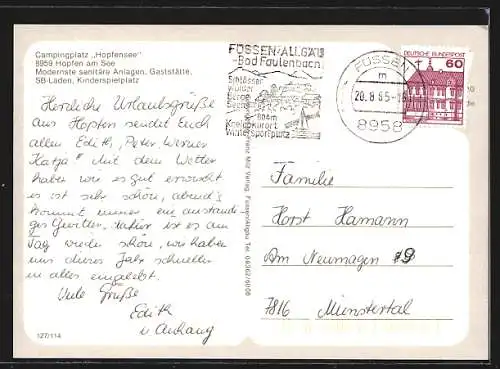 Campingplatz „Hopfensee"
8959 Hopfen am See
Modernste sanitäre Anlagen, Gaststätte,
SB-Laden, Kinderspielplatz
Herzliche Urlaubsgrüße
aus Hopfen sendet Euch
allen Edith, Peter, Werner
Katja" Mit dem Wetter
haben wir es gut erwischt
es ist sehr schön, abends
kommt immer ein anständi
ges Gewitter. Dafür ist es am
Tag wieder schön, wir haben
uns dieses Jahr schneller
in alles eingelebt.
Viele Grüße
Edith
u Anhang
127/114
FÜSSEN/ALLGÄU
-Bad Faulenbach
Schlösser
Wälder
Berge
804m
Kneippkurort
Wintersportplatz
FÜSSEN 1
m
20.8.85-18
8958
DEUTSCHE BUNDESPOST
60
Franz Milz Verlag Füssen/Allgäu Tel.
Familie
Horst Hamann
Am Neumagen 9
7816 Münstertal